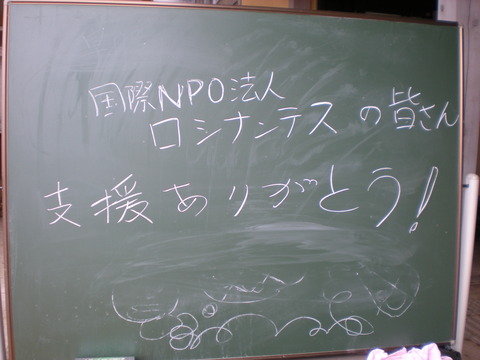 国際NPO法人
ロシナンテスの皆さん
支援ありがとう!